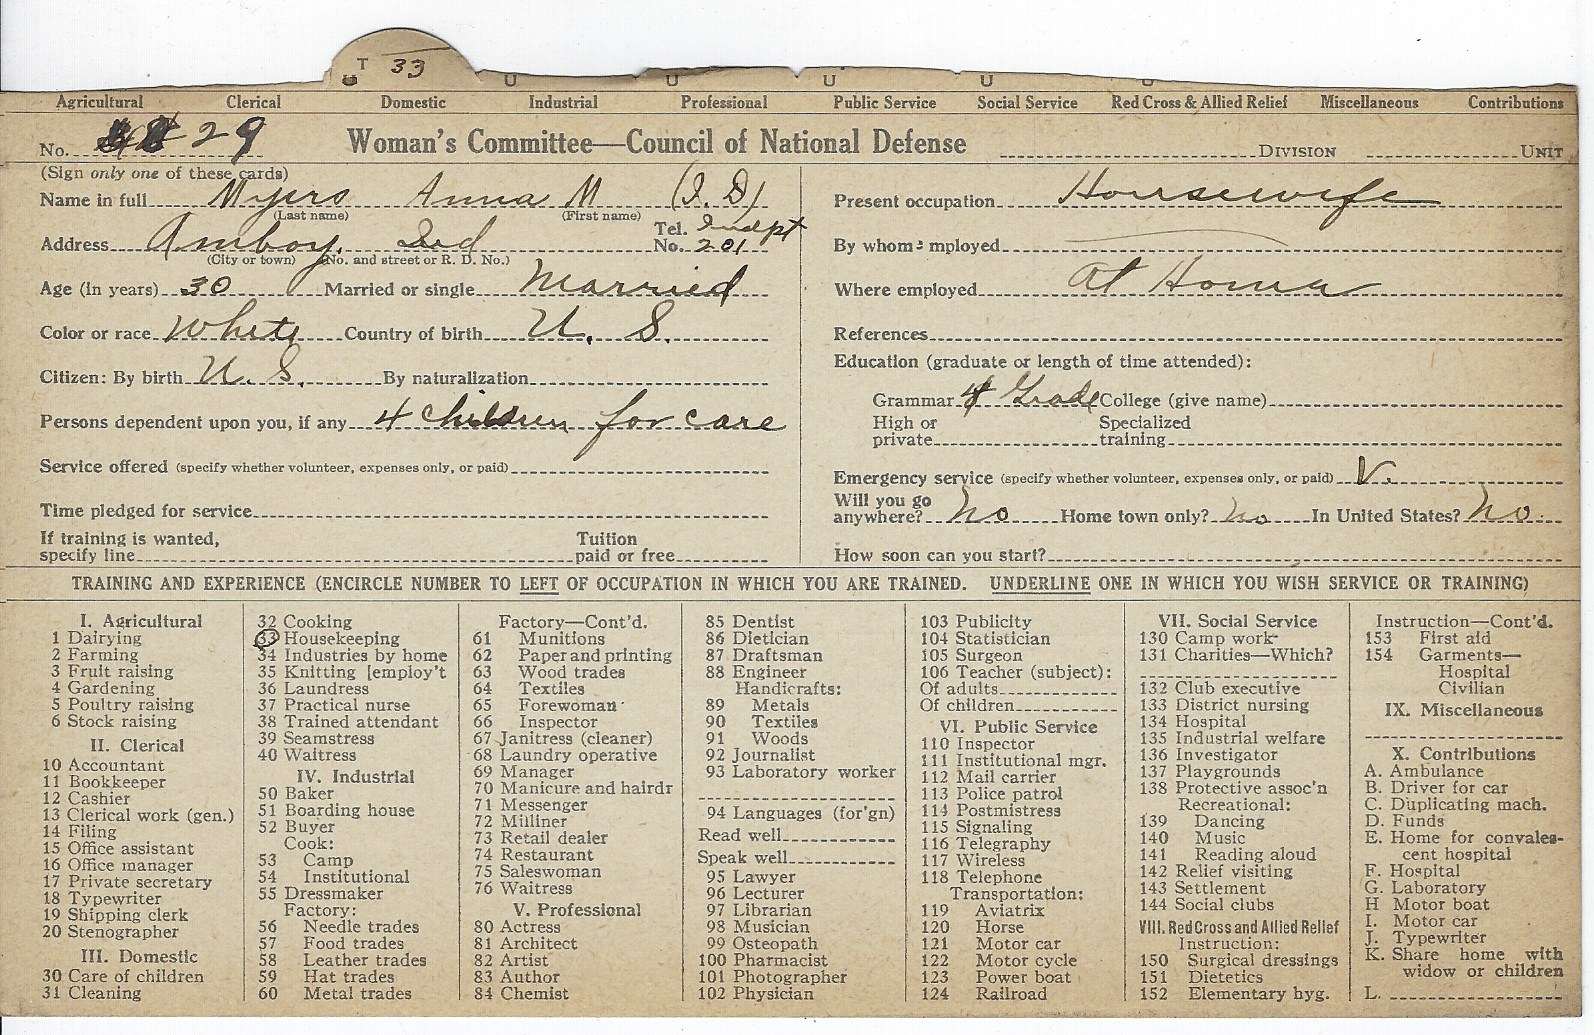 T 33
U U U U U
Agricultural Clerical Domestic Industrial Professional Public Service Social Service Red Cross & Allied Relief Miscellaneous Contributions
No. 29 Woman's Committee—Council of National Defense DIVISION UNIT
(Sign only one of these cards)
Name in full Myers Anna M (I. D)
(Last name) (First name)
Address Amboy, Ind Tel. No. Indpt 201
(City or town) (No. and street or R. D. No.)
Age (in years) 30 Married or single Married
Color or race White Country of birth U. S.
Citizen: By birth U. S. By naturalization
Persons dependent upon you, if any 4 children for care
Service offered (specify whether volunteer, expenses only, or paid)
Time pledged for service
If training is wanted,
specify line Tuition paid or free
Present occupation Housewife
By whom employed
Where employed At Home
References
Education (graduate or length of time attended):
Grammar Grade College (give name)
High or private Specialized training
Emergency service (specify whether volunteer, expenses only, or paid) V.
Will you go
anywhere? No Home town only? No In United States? No.
How soon can you start?
TRAINING AND EXPERIENCE (ENCIRCLE NUMBER TO LEFT OF OCCUPATION IN WHICH YOU ARE TRAINED. UNDERLINE ONE IN WHICH YOU WISH SERVICE OR TRAINING)
I. Agricultural
1 Dairying
2 Farming
3 Fruit raising
4 Gardening
5 Poultry raising
6 Stock raising
II. Clerical
10 Accountant
11 Bookkeeper
12 Cashier
13 Clerical work (gen.)
14 Filing
15 Office assistant
16 Office manager
17 Private secretary
18 Typewriter
19 Shipping clerk
20 Stenographer
III. Domestic
30 Care of children
31 Cleaning
32 Cooking
33 Housekeeping
34 Industries by home
35 Knitting [employ't
36 Laundress
37 Practical nurse
38 Trained attendant
39 Seamstress
40 Waitress
IV. Industrial
50 Baker
51 Boarding house
52 Buyer
Cook:
53 Camp
54 Institutional
55 Dressmaker
Factory:
56 Needle trades
57 Food trades
58 Leather trades
59 Hat trades
60 Metal trades
Factory—Cont'd.
61 Munitions
62 Paper and printing
63 Wood trades
64 Textiles
65 Forewoman
66 Inspector
67 Janitress (cleaner)
68 Laundry operative
69 Manager
70 Manicure and hairdr
71 Messenger
72 Milliner
73 Retail dealer
74 Restaurant
75 Saleswoman
76 Waitress
V. Professional
80 Actress
81 Architect
82 Artist
83 Author
84 Chemist
85 Dentist
86 Dietician
87 Draftsman
88 Engineer
Handicrafts:
89 Metals
90 Textiles
91 Woods
92 Journalist
93 Laboratory worker
94 Languages (for'gn)
Read well
Speak well
95 Lawyer
96 Lecturer
97 Librarian
98 Musician
99 Osteopath
100 Pharmacist
101 Photographer
102 Physician
103 Publicity
104 Statistician
105 Surgeon
106 Teacher (subject):
Of adults
Of children
VI. Public Service
110 Inspector
111 Institutional mgr.
112 Mail carrier
113 Police patrol
114 Postmistress
115 Signaling
116 Telegraphy
117 Wireless
118 Telephone
Transportation:
119 Aviatrix
120 Horse
121 Motor car
122 Motor cycle
123 Power boat
124 Railroad
VII. Social Service
130 Camp work
131 Charities—Which?
132 Club executive
133 District nursing
134 Hospital
135 Industrial welfare
136 Investigator
137 Playgrounds
138 Protective assoc'n
Recreational:
139 Dancing
140 Music
141 Reading aloud
142 Relief visiting
143 Settlement
144 Social clubs
VIII. Red Cross and Allied Relief
Instruction:
150 Surgical dressings
151 Dietetics
152 Elementary hyg.
Instruction—Cont'd.
153 First aid
154 Garments—
Hospital
Civilian
IX. Miscellaneous
X. Contributions
A. Ambulance
B. Driver for car
C. Duplicating mach.
D. Funds
E. Home for convales-
cent hospital
F. Hospital
G. Laboratory
H Motor boat
I. Motor car
J. Typewriter
K. Share home with
widow or children
L.